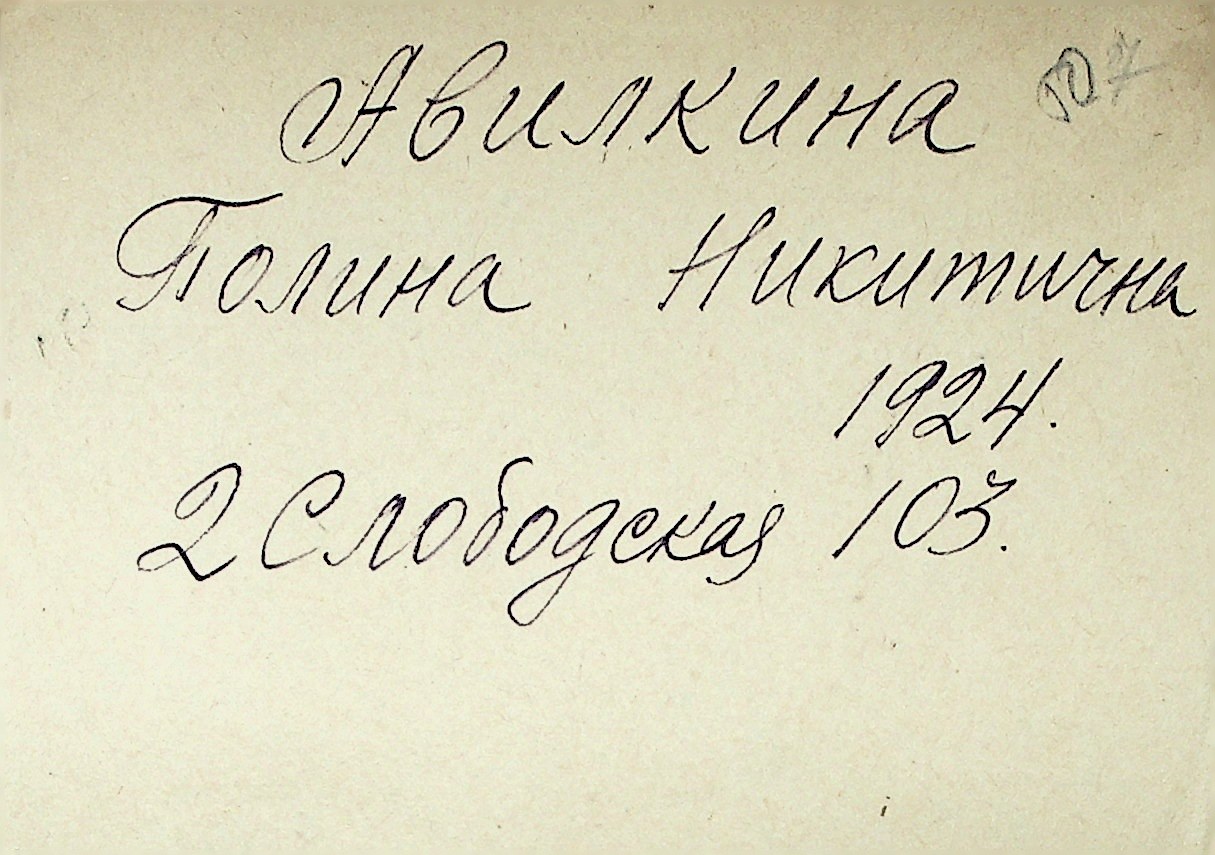 Авилкина
Полина Никитична
1924.
2 Слободская 103.